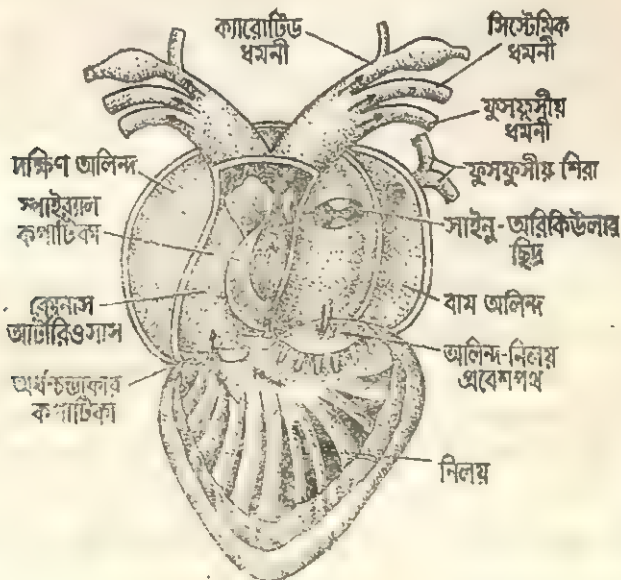 ক্যারোটিড
ধমনী
সিস্টেমিক
ধমনী
ফুসফুসীয়
ধমনী
ফুসফুসীয় শিরা
দক্ষিণ অলিন্দ
স্পাইর‍্যাল
কপাটিকা
সাইনু-অরিকিউলার
ছিদ্র
কোনাস
আর্টারিওসাস
বাম অলিন্দ
অলিন্দ-নিলয়
প্রবেশপথ
অর্ধচন্দ্রাকার
কপাটিকা
নিলয়